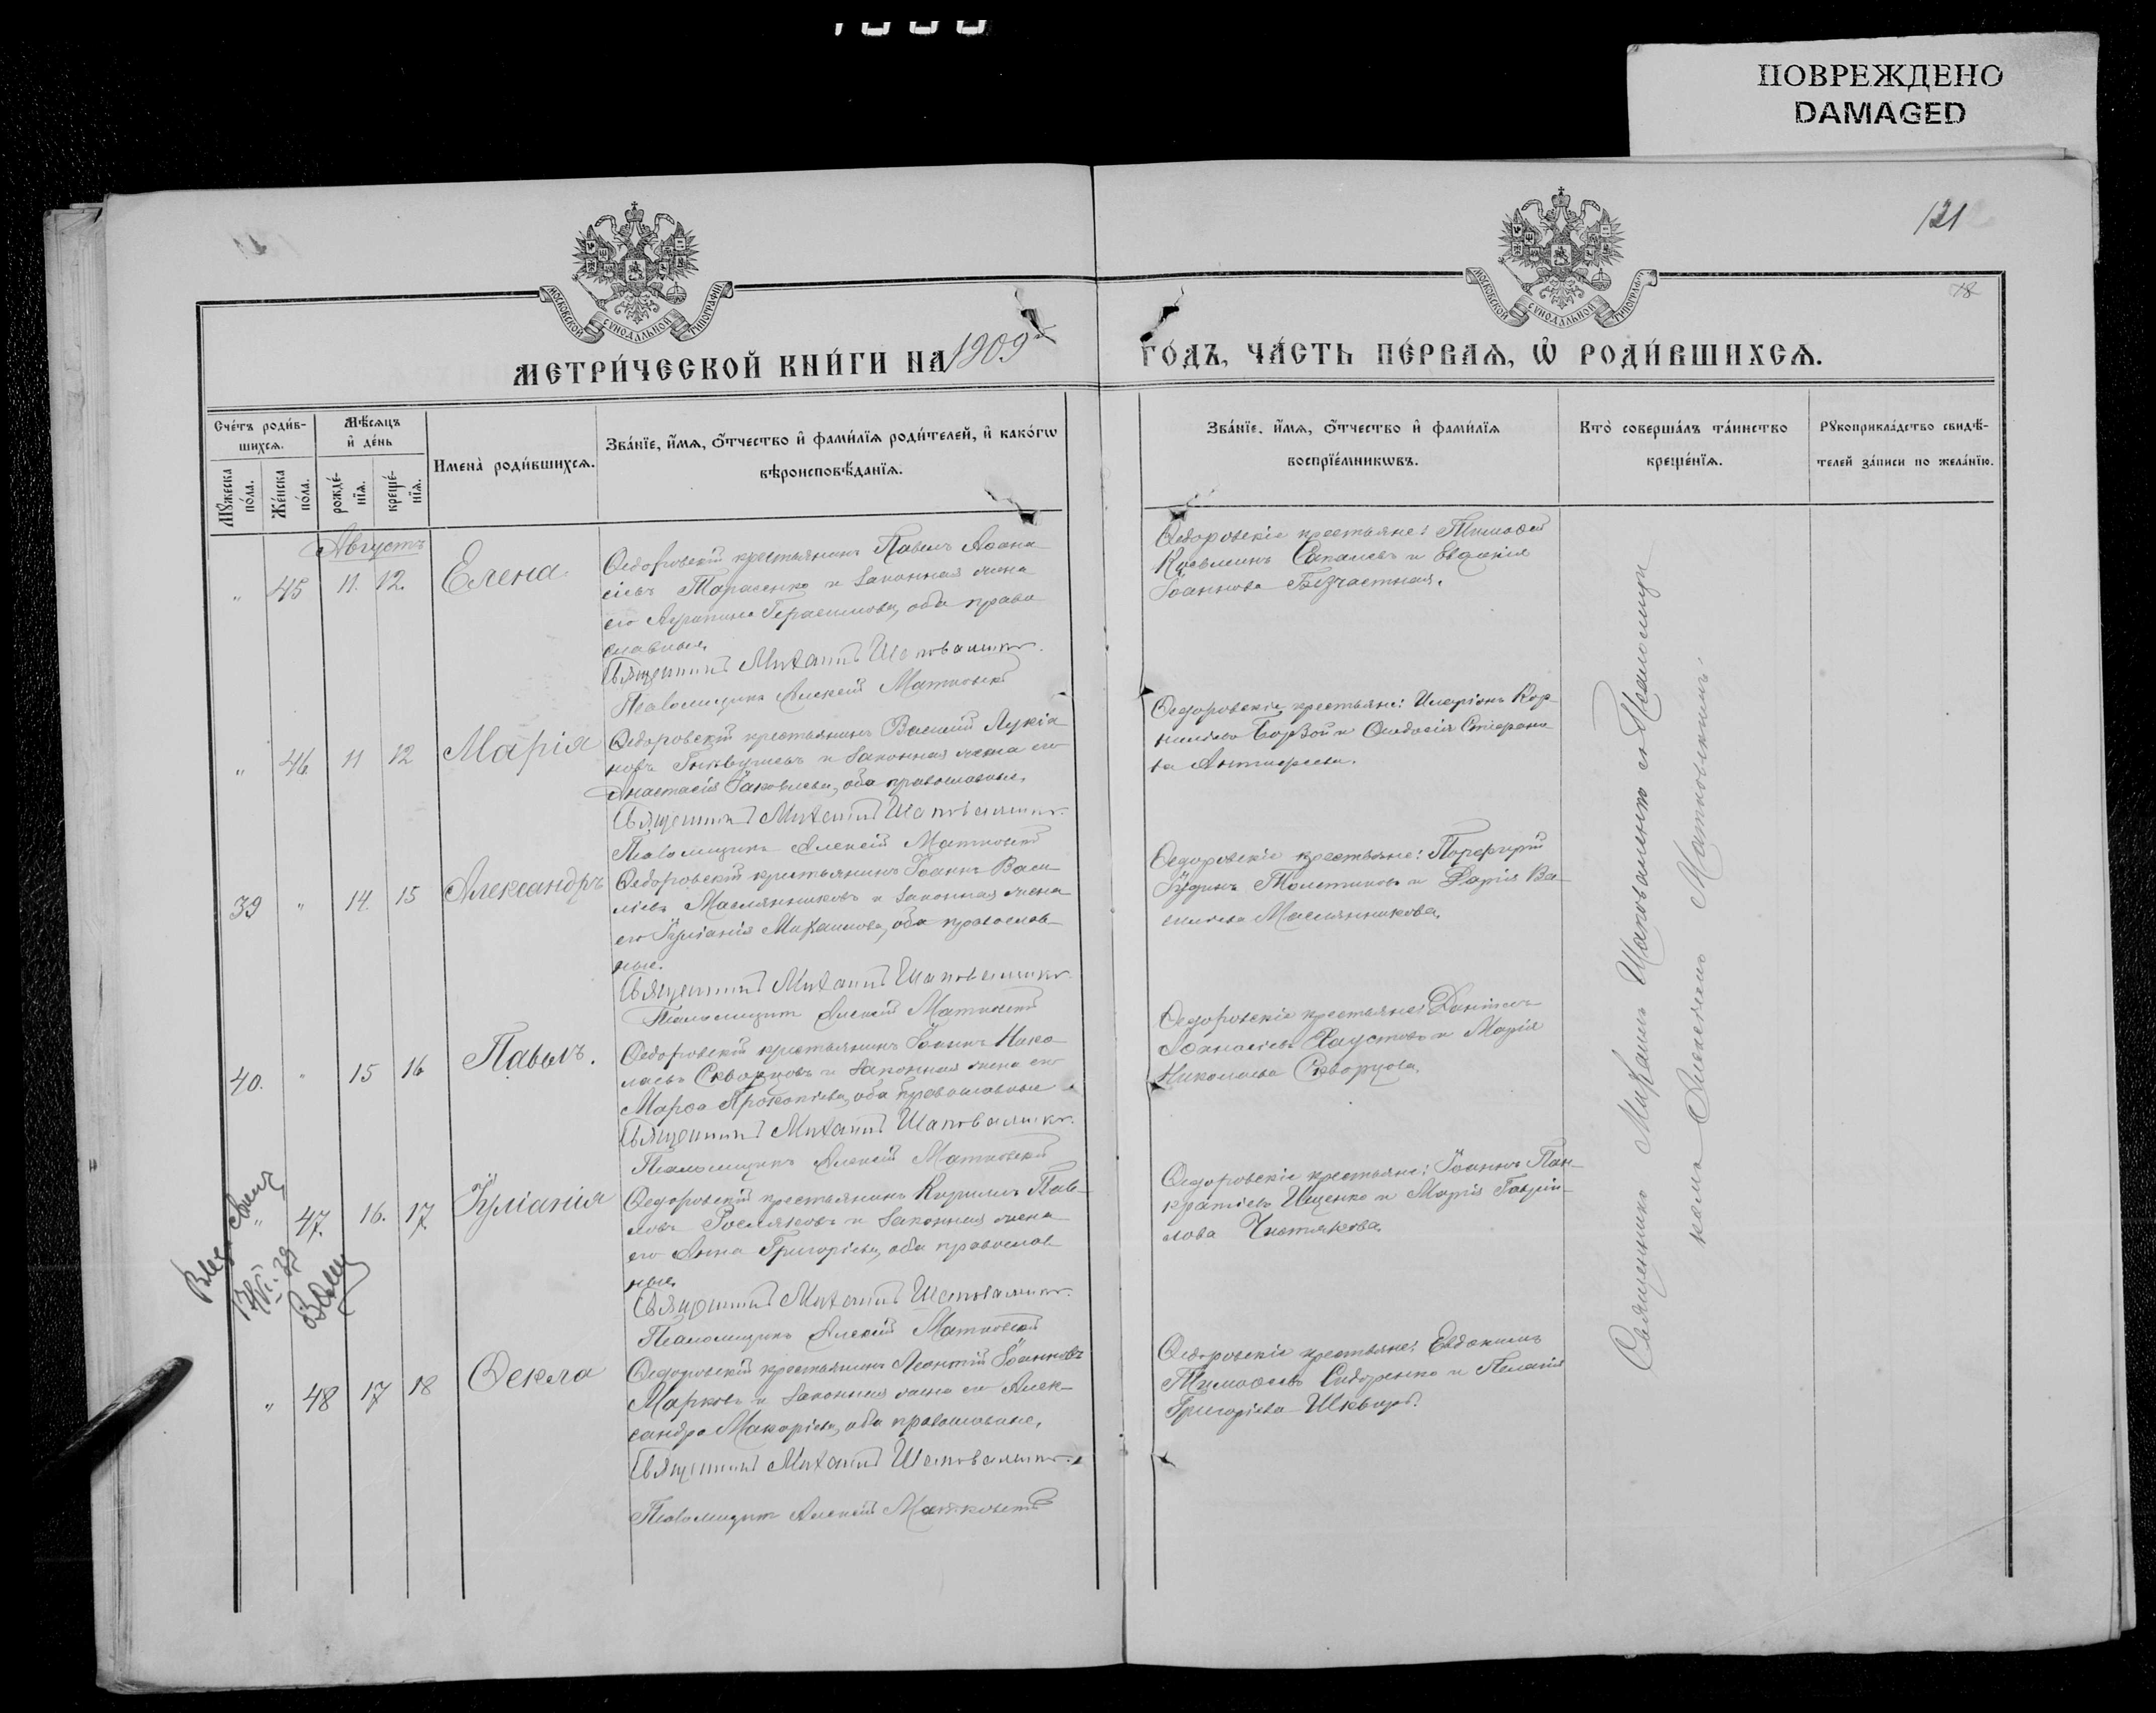 ПОВРЕЖДЕНО
DAMAGED
121
78
МОСКОВСКОЙ СѴНОДАЛЬНОЙ ТИПОГРАФІИ
МОСКОВСКОЙ СѴНОДАЛЬНОЙ ТИПОГРАФІИ
МЕТРИ́ЧЕСКОЙ КНИ́ГИ НА 1909
ГО́ДЪ, ЧА́СТЬ ПЕ́РВАѦ, Ѡ РОДИ́ВШИХСѦ.
Сче́тъ роди́в-
шихсѧ.
Мꙋжеска по́ла.
Же́нска по́ла.
Мѣ́сѧцъ
и҆ де́нь
рожде́-
нїѧ.
креще́-
нїѧ.
Имена̀ роди́вшихсѧ.
Зва́нїе, и҆́мѧ, ѻ҆́тчество и҆ фами́лїѧ роди́телей, и҆ како́гѡ
вѣроисповѣ́данїѧ.
Зва́нїе, и҆́мѧ, ѻ҆́тчество и҆ фами́лїѧ
воспрїе́мникѡвъ.
Кто̀ соверша́лъ та́инство
креще́нїѧ.
Рꙋкоприкла́дство свидѣ́-
телей за́писи по жела́нїю.
Августъ
" 45 11. 12. Елена
Ѳедоровскій крестьянинъ Павелъ Аѳана-
сіевъ Тарасенко и законная жена
его Агрипина Герасимова, оба право
славные.
Священникъ Михаилъ Шаповаленко.
Псаломщикъ Алексей Матковскій
Ѳедоровскіе крестьяне: Тимоѳей
Іоаннова Безчастная.
" 46 11 12 Марія
Ѳедоровскій крестьянинъ Василій Лукіа
новъ и законная жена его
Анастасія Іаковлева, оба православные.
Священникъ Михаилъ Шаповаленко.
Псаломщикъ Алексей Матковскій
Ѳедоровскіе крестьяне: Иларіонъ Кор-
ниліевъ Борзой и Ѳеодосія Стефано
ва
39 " 14. 15 Александръ
Ѳедоровскій крестьянинъ Іоаннъ Васи-
ліевъ Маслянниковъ и законная жена
его Іуліанія Михаилова, оба православ-
ные.
Священникъ Михаилъ Шаповаленко.
Псаломщикъ Алексей Матковскій
Ѳедоровскіе крестьяне: Порфирій
и Дарія Ва-
силіева Маслянникова.
40. " 15 16 Павелъ.
Ѳедоровскій крестьянинъ Іоаннъ Нико-
лаевъ Скворцовъ и законная жена его
Марѳа Прокопіева, оба православные
Священникъ Михаилъ Шаповаленко.
Псаломщикъ Алексей Матковскій
Ѳедоровскіе крестьяне: Даніилъ
Аѳанасіевъ Хаустовъ и Марія
Николаева Скворцова.
" 47. 16. 17. Іуліанія
Ѳедоровскій крестьянинъ Кириллъ Пав-
ловъ Росляковъ и законная жена
его Анна Григоріева, оба православ
ные.
Священникъ Михаилъ Шаповаленко.
Псаломщикъ Алексей Матковскій
Ѳедоровскіе крестьяне: Іоаннъ Пан-
кратіевъ Ищенко и Марія Гавріи-
лова Чистякова.
" 48 17 18 Ѳекла
Ѳедоровскій крестьянинъ Леонтій Іоанновъ
Марковъ и законная жена его Алек-
сандра Макаріева, оба православные.
Священникъ Михаилъ Шаповаленко.
Псаломщикъ Алексей Матковскій
Ѳедоровскіе крестьяне: Евдокимъ
Тимоѳеевъ Сидоренко и Пелагія
Григоріева
Священникъ Михаилъ Шаповаленко съ Псаломщи
комъ Алексеемъ Матковскимъ.